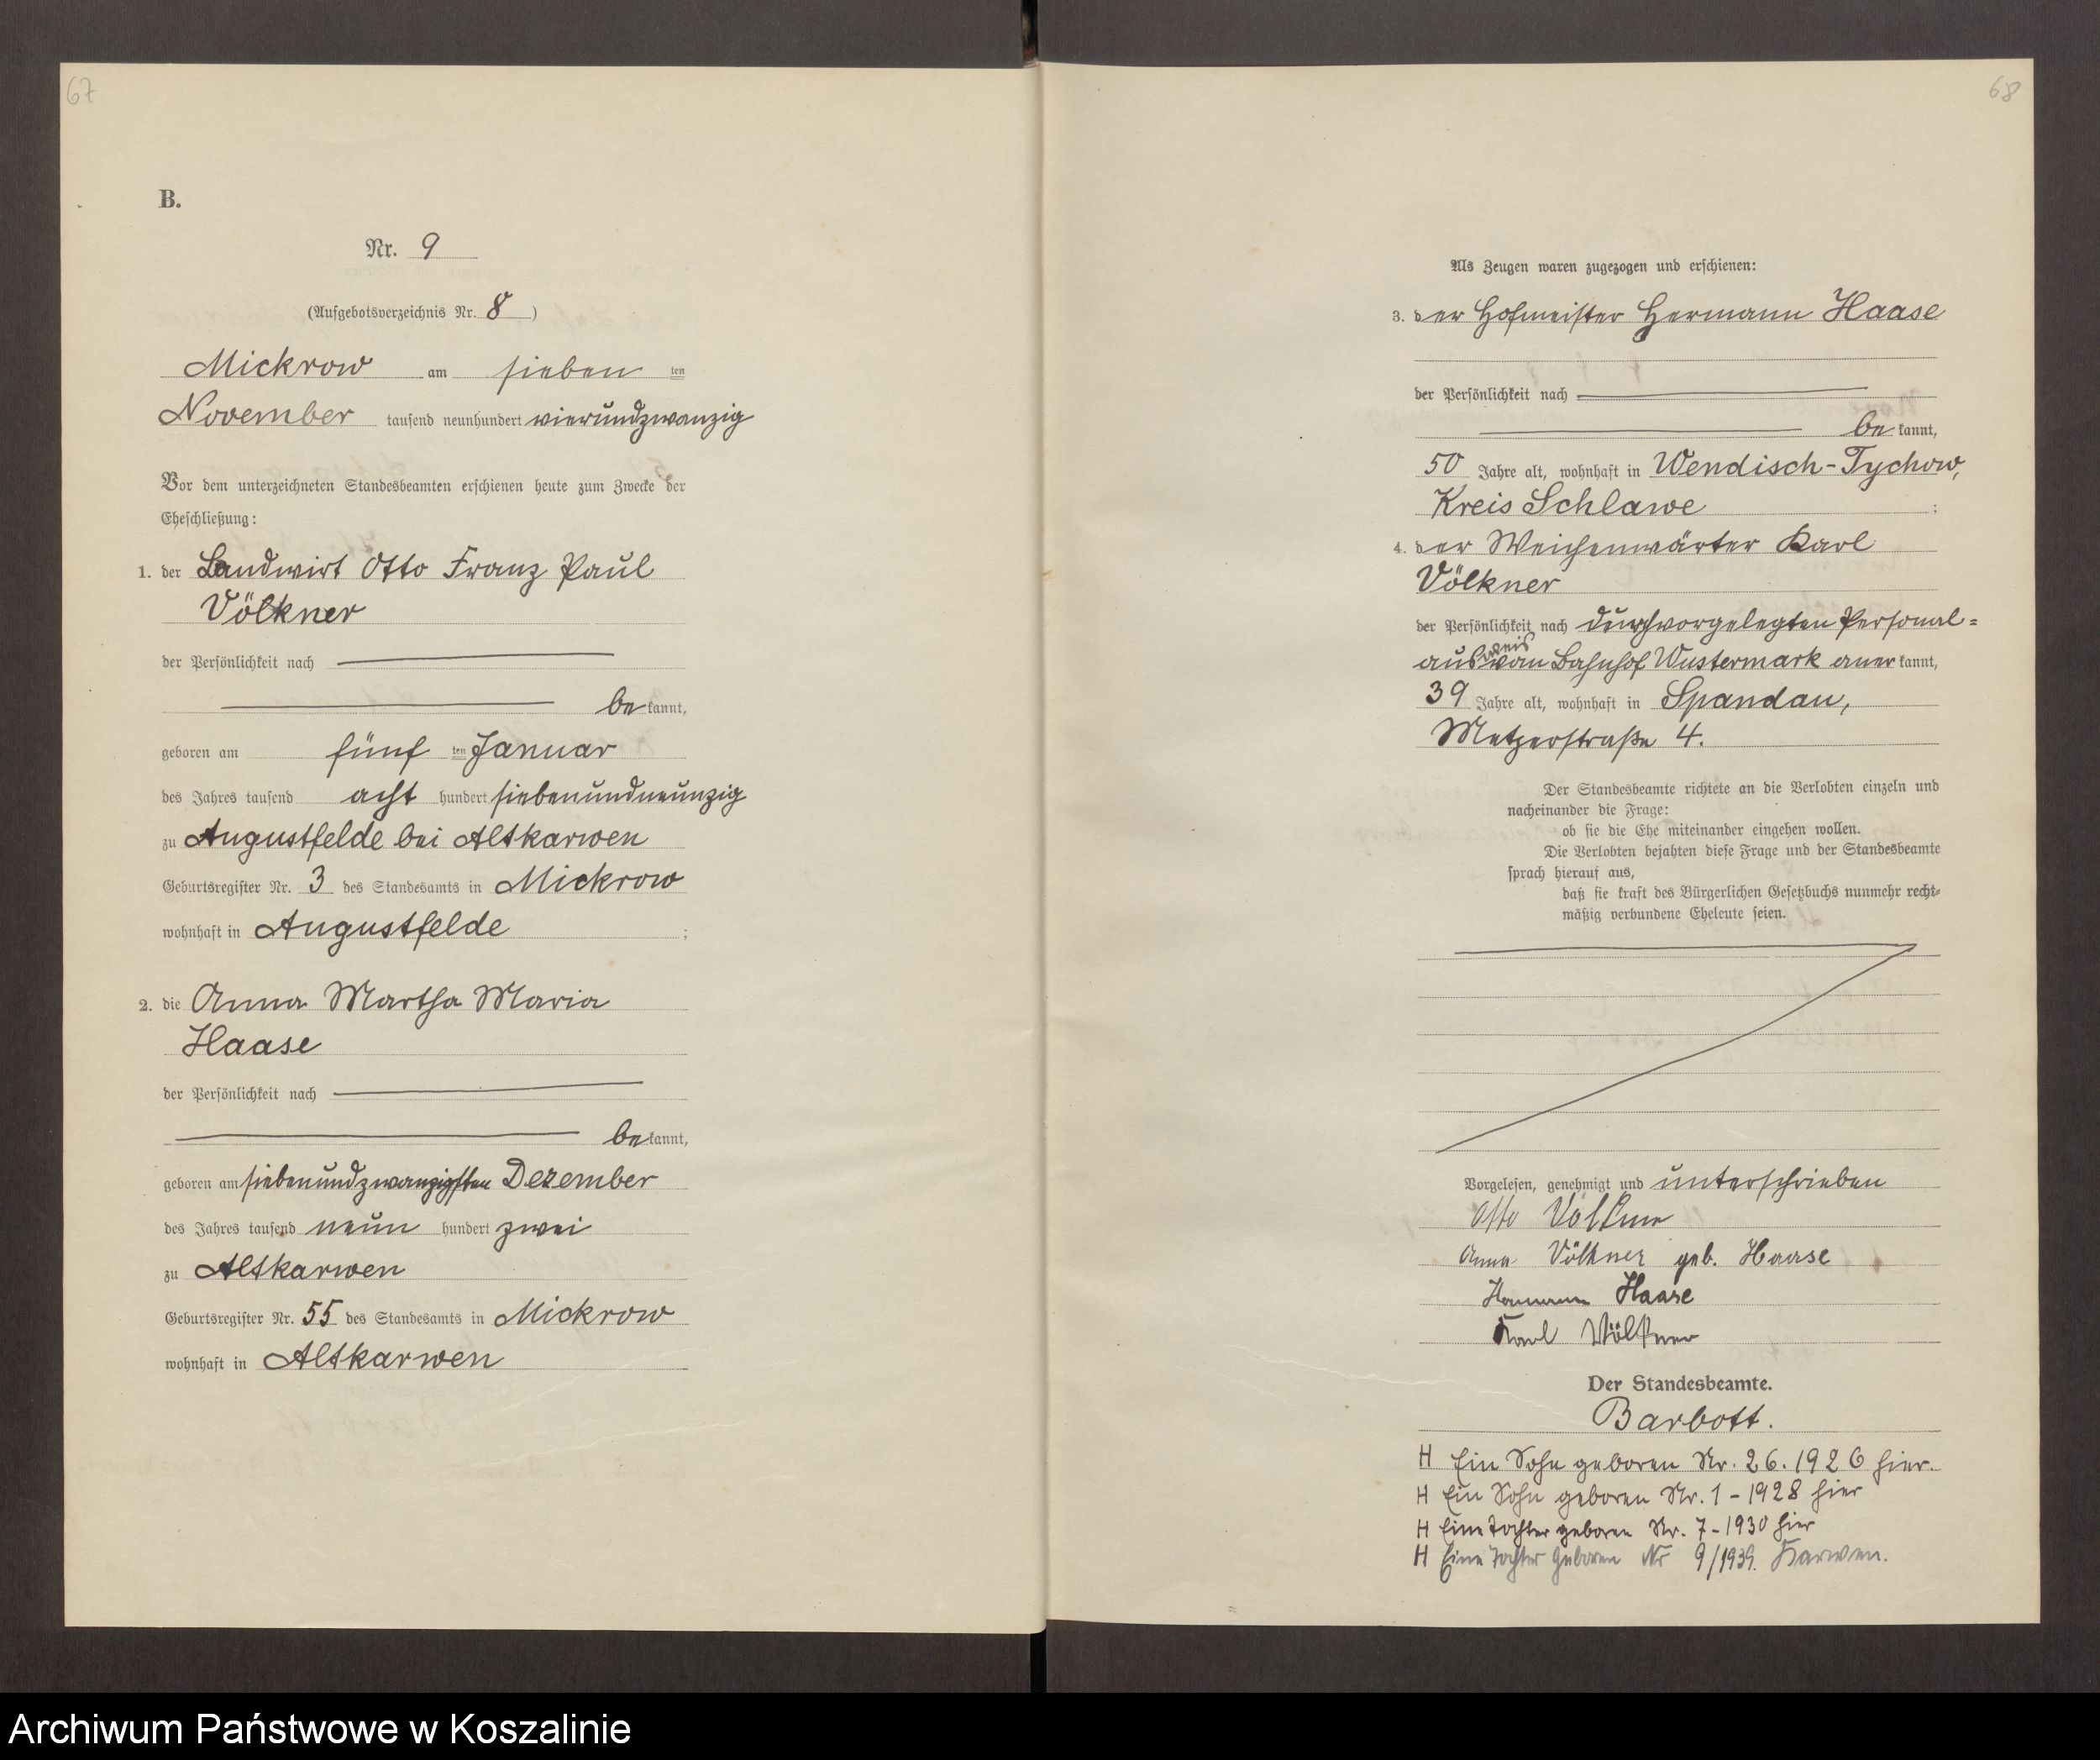 67
B.
Nr. 9
(Aufgebotsverzeichnis Nr. 8)
Mickrow am sieben ten
November tausend neunhundert vierundzwanzig
Vor dem unterzeichneten Standesbeamten erschienen heute zum Zwecke der
Eheschließung:
1. der Landwirt Otto Franz Paul
Völkner
der Persönlichkeit nach
be kannt,
geboren am fünf ten Januar
des Jahres tausend acht hundert siebenundneunzig
zu Augustfelde bei Altkarwen
Geburtsregister Nr. 3 des Standesamts in Mickrow
wohnhaft in Augustfelde ;
2. die Anna Martha Maria
Haase
der Persönlichkeit nach
be kannt,
geboren am siebenundzwanzigsten Dezember
des Jahres tausend neun hundert zwei
zu Altkarwen
Geburtsregister Nr. 55 des Standesamts in Mickrow
wohnhaft in Altkarwen
68
Als Zeugen waren zugezogen und erschienen:
3. der Hofmeister Hermann Haase
der Persönlichkeit nach
be kannt,
50 Jahre alt, wohnhaft in Wendisch-Tychow,
Kreis Schlawe ;
4. der Weichenwärter Karl
Völkner
der Persönlichkeit nach durch vorgelegten Personal=
ausweis vom Bahnhof Wustermark aner kannt,
39 Jahre alt, wohnhaft in Spandau,
Metzerstraße 4.
Der Standesbeamte richtete an die Verlobten einzeln und
nacheinander die Frage:
ob sie die Ehe miteinander eingehen wollen.
Die Verlobten bejahten diese Frage und der Standesbeamte
sprach hierauf aus,
daß sie kraft des Bürgerlichen Gesetzbuchs nunmehr recht-
mäßig verbundene Eheleute seien.
Vorgelesen, genehmigt und unterschrieben
Otto Völkner
Anna Völkner geb. Haase
Hermann Haase
Karl Völkner
Der Standesbeamte.
Barbott.
H Ein Sohn geboren Nr. 26. 1926 hier.
H Ein Sohn geboren Nr. 1 - 1928 hier
H Eine Tochter geboren Nr. 7 - 1930 hier
H Eine Tochter geboren Nr 9/1939. Karwen.
Archiwum Państwowe w Koszalinie